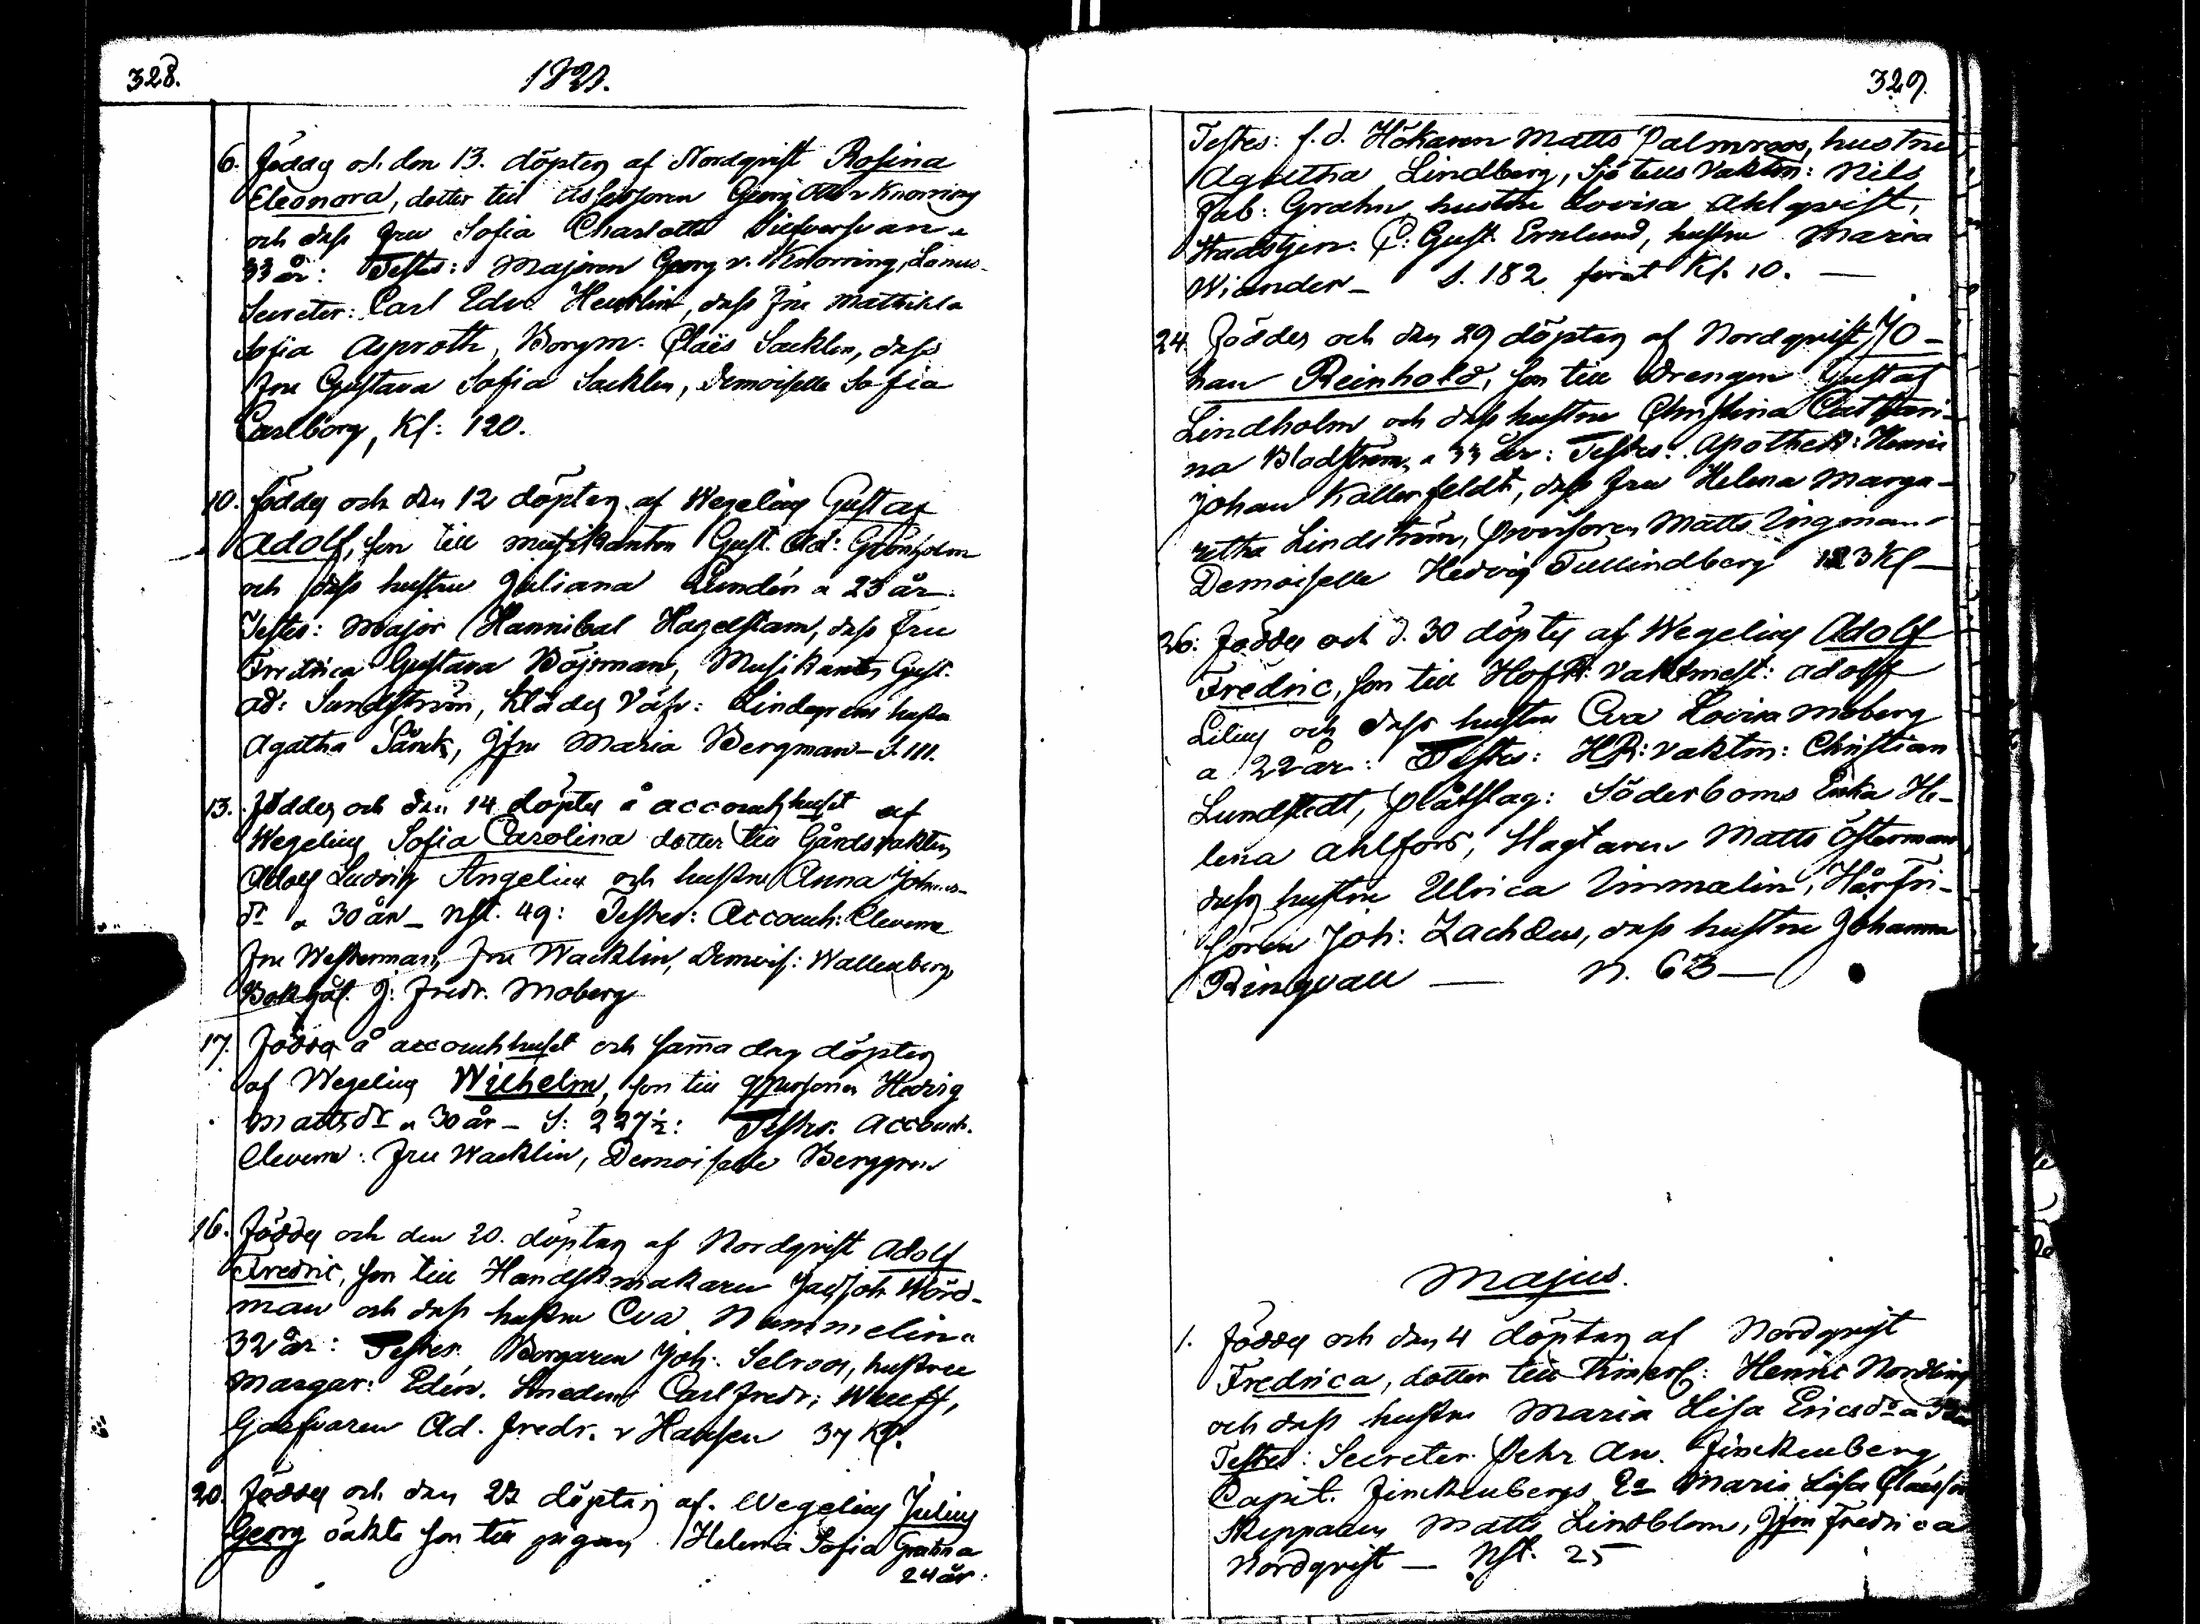 328.
1821.
6. Föddes och den 13. döptes af Nordqvist Rosina
Eleonora, dotter till Assessoren Georg Otto v Knorring
och dess Fru Sofia Charlotta Silfversvan a
33 år: Testes: Majoren Georg v. Knorring, Lands-
Secreter: Carl Edv. Heurlin, dess Fru Mathilda
Sofia Asproth, Borgm. Claës Sacklen, dess
Fru Gustava Sofia Sacklen, Demoiselle Sofia
Carlborg, Kl: 120.
10. Föddes och den 12 döptes af Wegelius Gustaf
Adolf, son till musikanten Gust. Ad: Grönholm
och dess hustru Juliana Lundén a 23 år.
Testes: Major Hannibal Hagelstam, dess Fru
Fredrica Gustava Böjsman, Musikanten Gust.
Ad: Sundström, Klädes Väfv: Lindgrens hustru
Agatha, Jfru Maria Bergman – S. 111.
13. Föddes och den 14 döptes å accouchhuset af
Wegelius Sofia Carolina dotter till Gårdsvakten
Adolf Ludvig Angelius och hustru Anna Johans-
dr a 30 år – Nst. 49: Testes: Accouch: Eleverne
Fru Westerman, Fru Wacklin, Demois: Wallenberg,
Bokhål. J: Fredr. Moberg
17. Föddes å accouchhuset och samma dag döptes
af Wegelius Wilhelm, son till qpersonen Hedvig
Mattsdr a 30 år – S: 227½: Testes. Accouch.
Eleverne: Fru Wacklin, Demoiselle Berggren
16. Föddes och den 20. döptes af Nordqvist Adolf
Fredric, son till Handskmakaren Jac Joh Nörd-
man och dess hustru Eva Nummelin a
32 år: Testes. Borgaren Joh. Selroos, hustru
Margar: Edén. Smeden Carl Fredr: Wulff,
Garfvaren Ad. Fredr. v Hausen 37 Kl.
20. Föddes och den 23 döptes af Wegelius Julius
Georg oäkta son till pigan Helena Sofia
24 år.
329.
Testes: f.d. Hökaren Matts Palmroos, hustru
Agnetha Lindberg, Sjö tulls Vaktm: Nils
Jab: Grahn, hustru Lovisa Ahlqvist,
Stadstjen. C: Gust. Ernlund, hustru Maria
Wiander – S. 182 förut Kl. 10. —
24. Föddes och den 29 döptes af Nordqvist Jo-
han Reinhold, son till Drengen Gustaf
Lindholm och dess hustru Christina Cathari-
na Blodström, a 33 år: Testes. Apothek: Henric
Johan Kallenfeldt, dess Fru Helena Marga-
retha Lindström, Provisoren Matts Ingman
Demoiselle Hedvig Tullindberg 123 Kl –
26. Föddes och d. 30 döptes af Wegelius Adolf
Fredric, son till HofR: Vaktmest: Adolf
Lilius och dess hustru Eva Lovisa Moberg
a 22 år: Testes: HR: Vaktm: Christian
Lundstedt, Plåtslag: Söderboms Enka He-
lena Ahlfors, Hagtaren Matts Österman
dess hustru Ulrica Immalin, Hårfri-
sören Joh: Zachæus, dess hustru Johanna
Ringvall — N. 63 —
Majus.
1. Föddes och den 4 döptes af Nordqvist
Fredrica, dotter till Timerl: Henric Nordling
och dess hustru Maria Lisa Ericsdr a
Testes: Secreter Pehr An. Finckenberg,
Capit. Finckenbergs Ea Maria Lisa
Skepparen Matts Lindblom, Jfru Fredrica
Nordqvist — Nst. 25